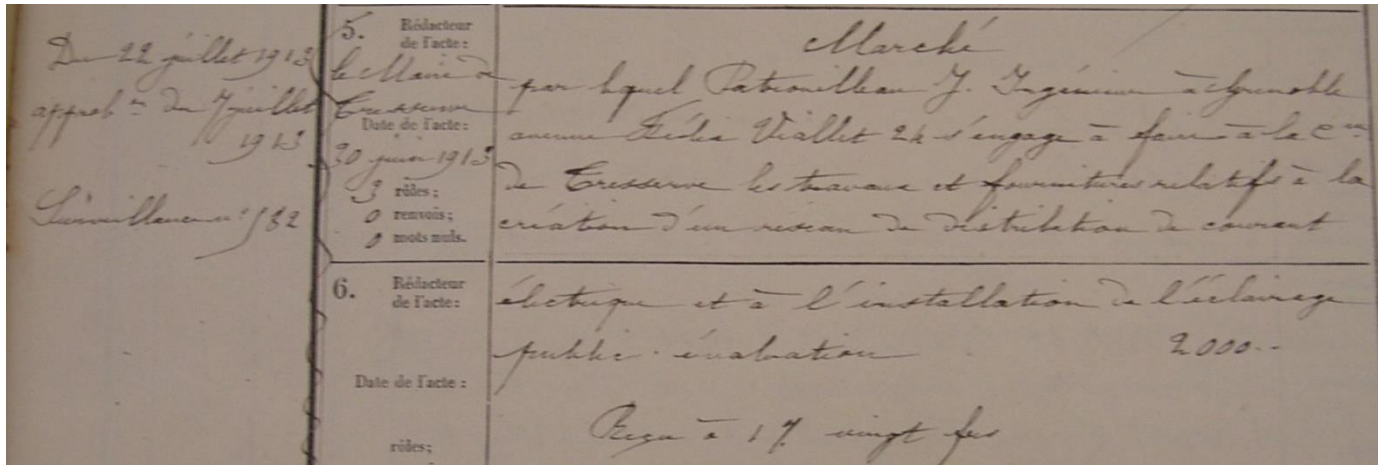 Du 22 juillet 1913
approb.on du 7 juillet
1913
Surveillance n° 582
5. Rédacteur
de l'acte:
le Maire de
Tresserve
Date de l'acte:
30 juin 1913
3 rôles;
0 renvois;
0 mots nuls.
Marché
par lequel Patrouilleau J. Ingénieur à Grenoble
avenue Félix Viallet 24 s'engage à faire à la Cne
de Tresserve les travaux et fournitures relatifs à la
création d'un réseau de distribution de courant
6. Rédacteur
de l'acte:
Date de l'acte:
rôles;
électrique et à l'installation de l'éclairage
public. évaluation 2000..
Reçu à 1% vingt fcs